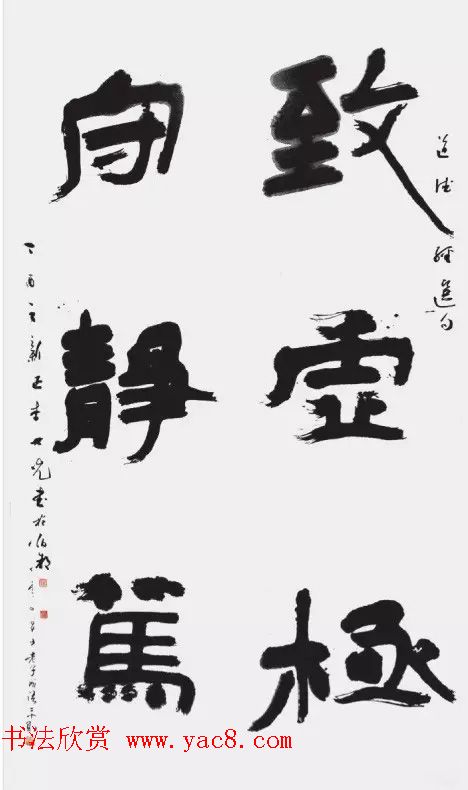 致虚極
守靜篤
道德經選句
丁酉之新正李世兆書於
书法欣赏 www.yac8.com